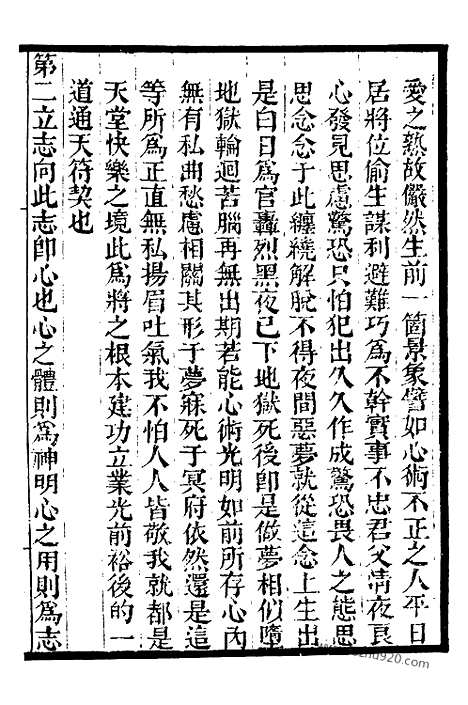 愛之熟故儼然生前一箇景象譬如心術不正之人平日
居將位偷生謀利避難巧為不幹實事不忠君父清夜良
心發見思慮驚恐只怕犯出久久作成驚恐畏人之態思
思念念于此纏繞解脫不得夜間惡夢就從這念上生出
是白日為官轟烈黑夜已下地獄死後即是做夢相似墮
地獄輪迴苦腦再無出期若能心術光明如前所存心內
無有私曲愁慮相關其形于夢寐死于冥府依然還是這
等所為正直無私揚眉吐氣我不怕人人皆敬我就都是
天堂快樂之境此為將之根本建功立業光前裕後的一
道通天符契也
第二立志向此志即心也心之體則為神明心之用則為志